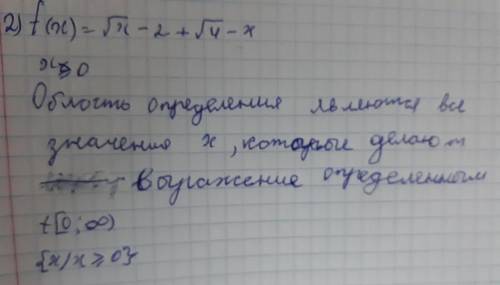 2) f(x) = √x - 2 + √4 - x
x ≥ 0
Область определения являются все
значения x, которые делают
выражение определенным
[0; ∞)
{x/x ≥ 0}